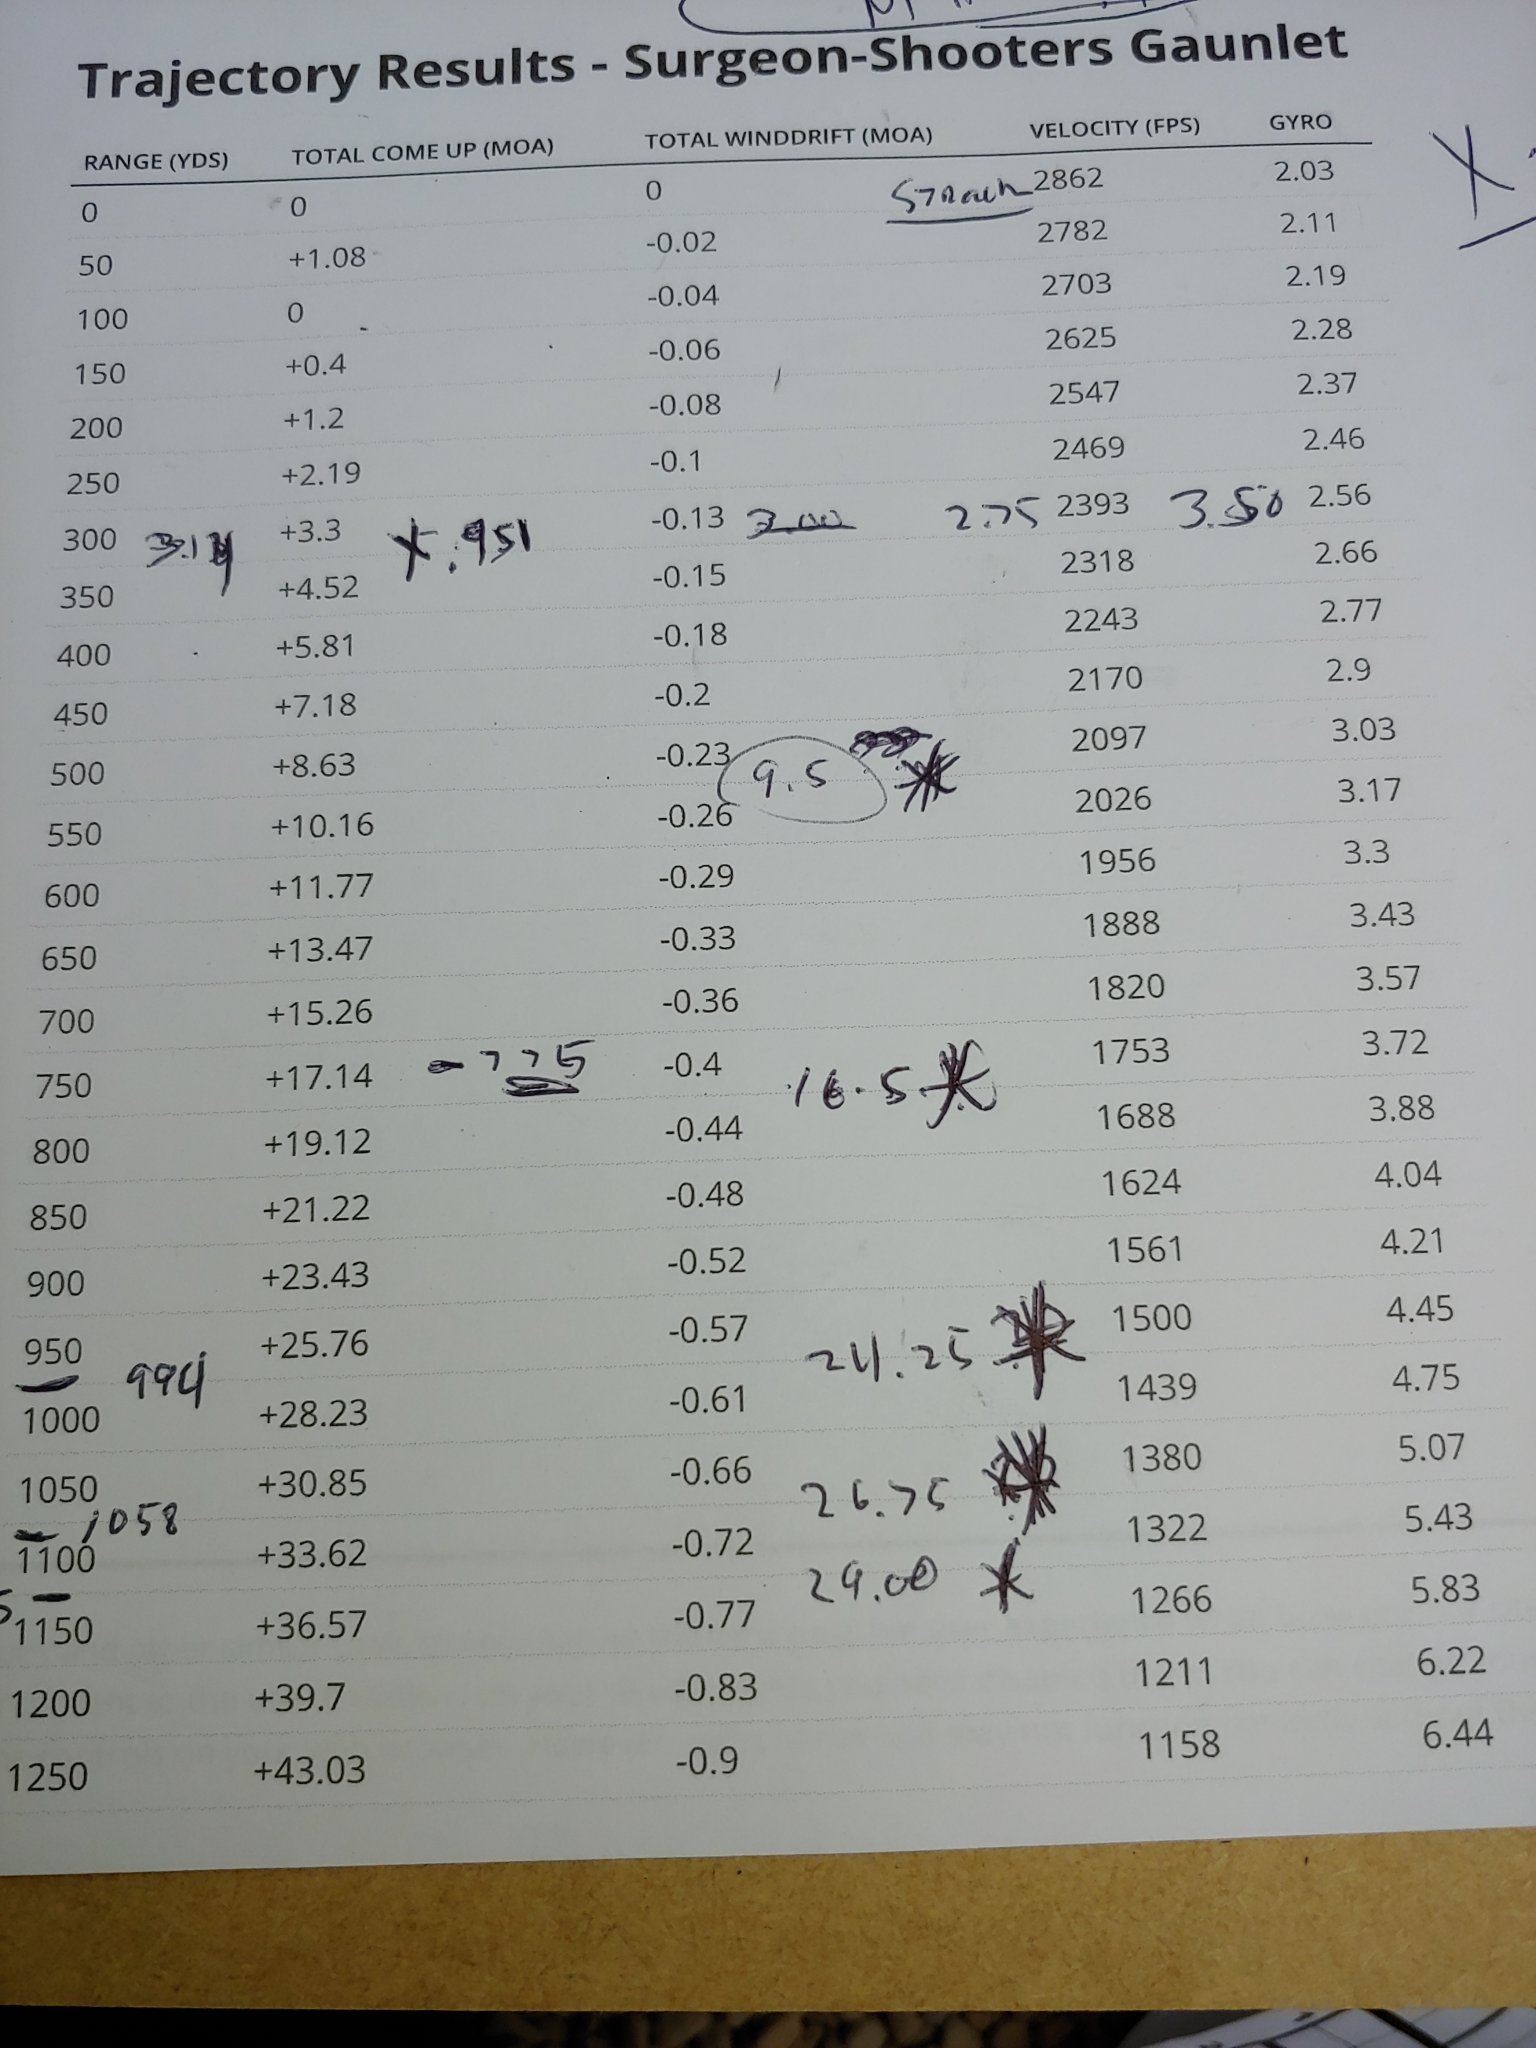 Trajectory Results - Surgeon-Shooters Gaunlet
RANGE (YDS) TOTAL COME UP (MOA) TOTAL WINDDRIFT (MOA) VELOCITY (FPS) GYRO
0 0 0 2862 2.03
50 +1.08 -0.02 2782 2.11
100 0 -0.04 2703 2.19
150 +0.4 -0.06 2625 2.28
200 +1.2 -0.08 2547 2.37
250 +2.19 -0.1 2469 2.46
300 +3.3 X.951 -0.13 3.00 2.75 2393 3.50 2.56
350 +4.52 -0.15 2318 2.66
400 +5.81 -0.18 2243 2.77
450 +7.18 -0.2 2170 2.9
500 +8.63 -0.23 9.5 2097 3.03
550 +10.16 -0.26 2026 3.17
600 +11.77 -0.29 1956 3.3
650 +13.47 -0.33 1888 3.43
700 +15.26 -0.36 1820 3.57
750 +17.14 -775 -0.4 16.5 1753 3.72
800 +19.12 -0.44 1688 3.88
850 +21.22 -0.48 1624 4.04
900 +23.43 -0.52 1561 4.21
950 +25.76 -0.57 1500 4.45
994 24.25
1000 +28.23 -0.61 1439 4.75
1050 +30.85 -0.66 26.75 1380 5.07
1058
1100 +33.62 -0.72 29.00 1322 5.43
1150 +36.57 -0.77 1266 5.83
1200 +39.7 -0.83 1211 6.22
1250 +43.03 -0.9 1158 6.44